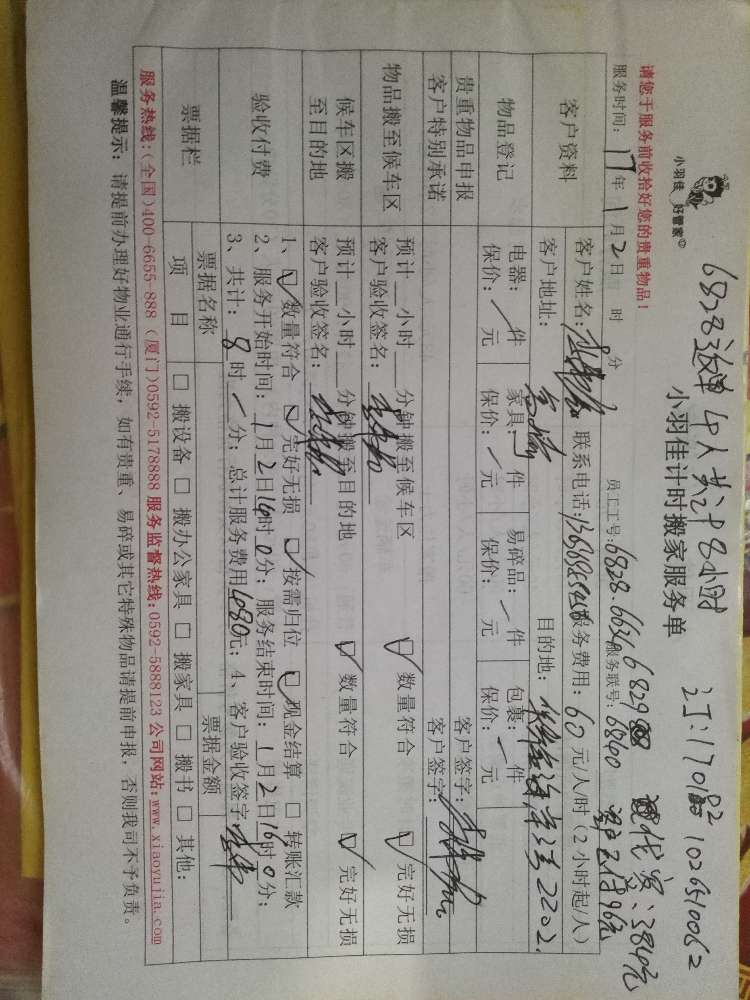 6828返单 4人共计8小时
订:170102 1026510062
小羽佳 好管家©
小羽佳计时搬家服务单
代资:384元
请您于服务前收拾好您的贵重物品!
员工工号:6828.6634 682988 服务联号:6840
服务时间:17年1月2日 时 分
客户资料
客户姓名: 联系电话: 服务费用:60元/人/时(2小时起/人)
客户地址: 目的地: 2202.
物品登记
电器:/件 家具:/件 易碎品:/件 包裹:/件
保价:/元 保价:/元 保价: 元 保价: 元
贵重物品申报 客户签字:
客户特别承诺 客户签字:
物品搬至候车区
预计__小时__分钟搬至候车区 ☑数量符合 ☑完好无损
客户验收签名:
候车区搬至目的地
预计__小时__分钟搬至目的地 ☑数量符合 ☑完好无损
客户验收签名:
验收付费
1、☑数量符合 ☑完好无损 ☑按需归位 ☑现金结算 □转账汇款
2、服务开始时间:1月2日14时0分;服务结束时间:1月2日16时0分;
3、共计:8时/分;总计服务费用480元;4、客户验收签字
票据栏
票据名称 票据金额
项 目 □搬设备 □搬办公家具 □搬家具 □搬书 □其他:
服务热线:(全国)400-6655-888 (厦门)0592-5178888 服务监督热线:0592-5888123 公司网站:www.xiaoyujia.com
温馨提示:请提前办理好物业通行手续,如有贵重、易碎或其它特殊物品请提前申报,否则我司不予负责。